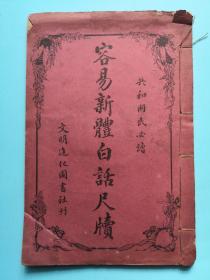 共和國民必讀
容易新體白話尺牘
文明進化圖書社刊